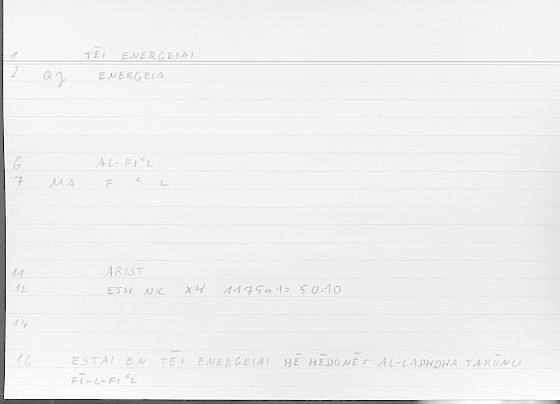 1 TĒI ENERGEIAI
2 QJ ENERGEIA
6 AL-FIᶜL
7 MA F ᶜ L
11 ARIST
12 ETH NIC X4 1175a1= 50:10
14
16 ESTAI EN TĒI ENERGEIAI HĒ HĒDONĒ= AL-LADHDHA TAKŪNU
FĪ-L-FIᶜL